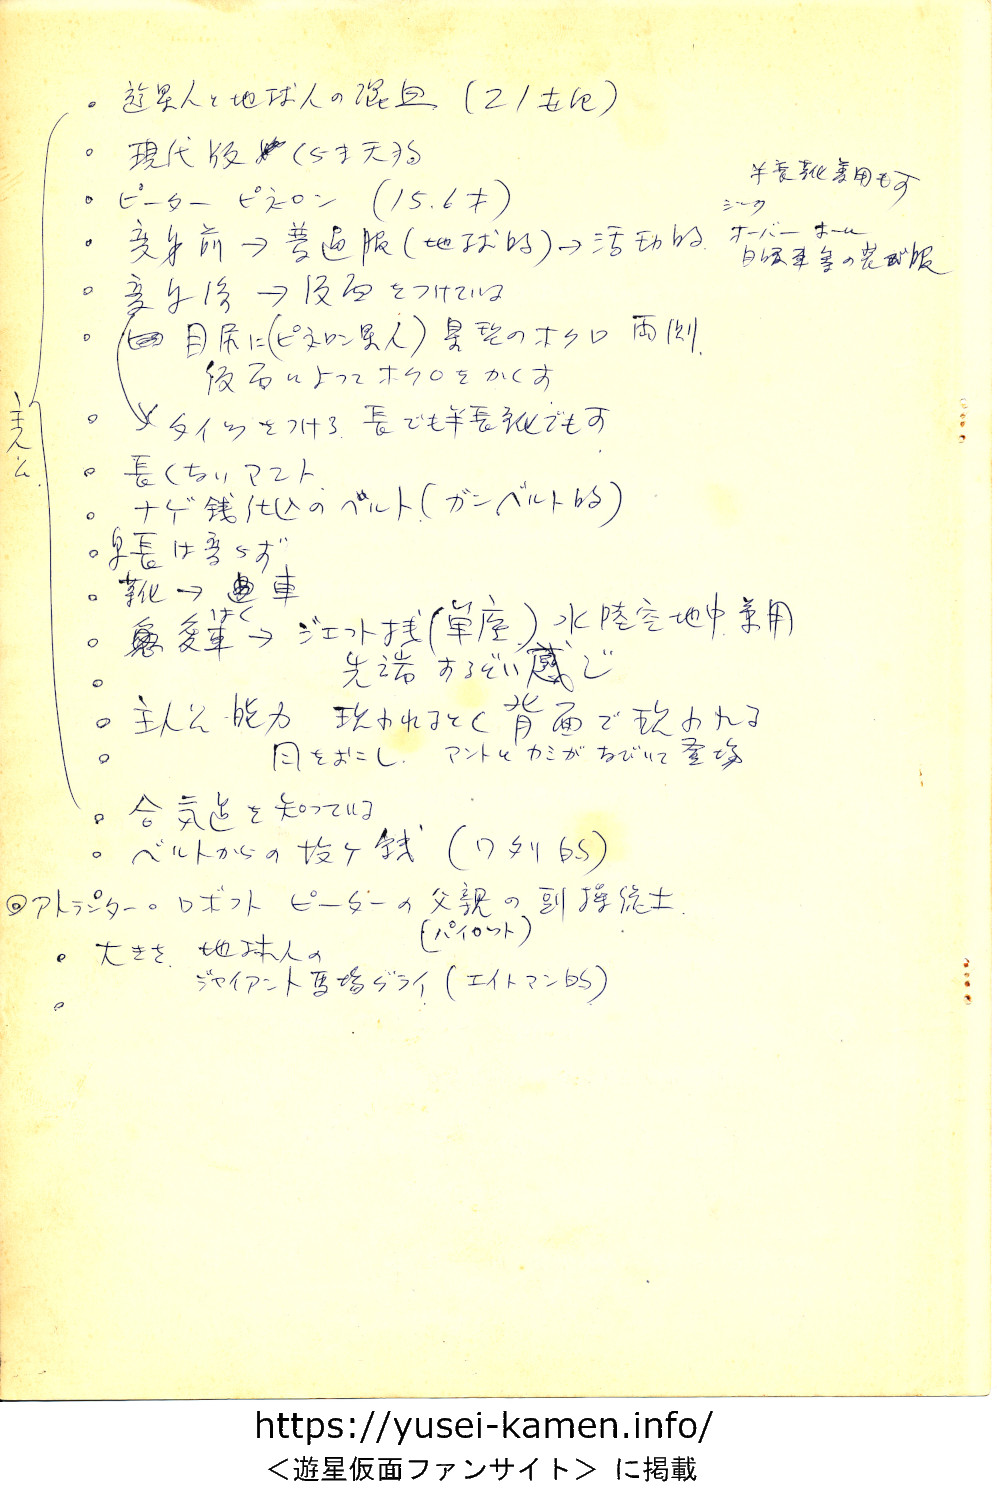 主人公
。遊星人と地球人の混血(21世紀)
。現代版 くらま天狗
。ピーター ピネロン (15.6才)
半長靴兼用もす
ジーク
。変身前→普通服(地球的)→活動的
オーバーホール
自転車等の装備服
。変身後→仮面をつけている
。目尻に(ピネロン星人)星型のホクロ 両側
仮面によってホクロをかくす
。タイツをつける。長でも半長靴でもす
。長くないマント
。ナゲ銭仕込のベルト(ガンベルト的)
。身長は変らず
。靴→車
はく
。愛車→ジェット機(単座)水陸空地中兼用
。先端するどい感じ
。主人公能力 現われるとく背面で現われる
。月をおこし. マントとカミがなびいて登場
。合気道を知っている
。ベルトからの投ゲ銭(ワタリ的)
◎アトランター。ロボット ピーターの父親の副操縦士
(パイロット)
。大きさ 地球人の
ジャイアント馬場グライ(エイトマン的)
。
https://yusei-kamen.info/
＜遊星仮面ファンサイト＞ に掲載